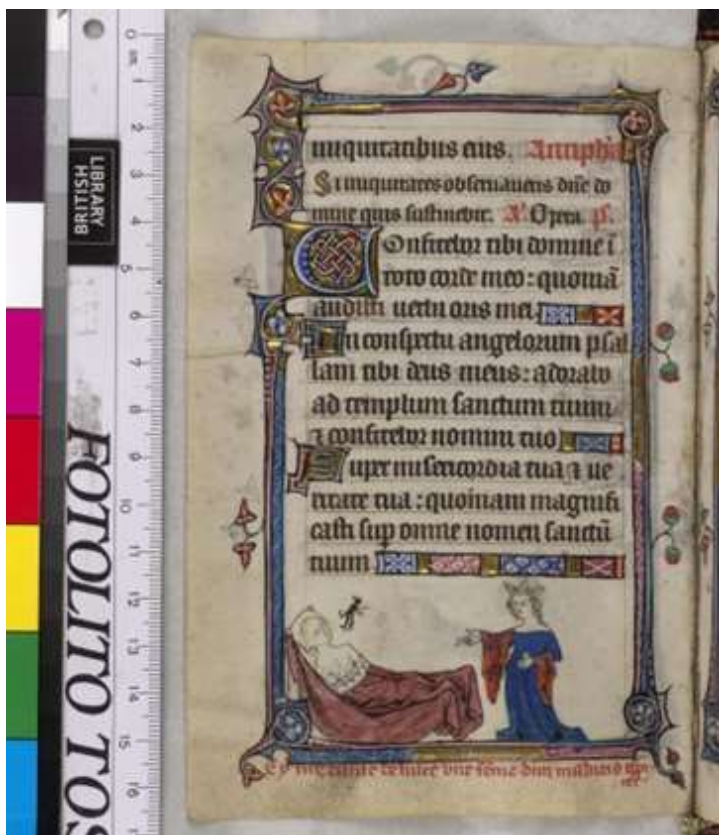 BRITISH
LIBRARY
FOTOLITO TOS
0 cm 1 2 3 4 5 6 7 8 9 10 11 12 13 14 15 16
iniquitatibus eius. Antiph
Si iniquitates observaveris dñe do
mine quis sustinebit. Opera p̄.
Onfitebor tibi domine ī
toto corde meo: quoniā
audisti verba oris mei
In conspectu angelorum psal
lam tibi deus meus: adorabo
ad templum sanctum tuum
⁊ confitebor nomini tuo
uper misericordia tua ⁊ ve
ritate tua: quoniam magnifi
casti sup omne nomen sanctū
tuum